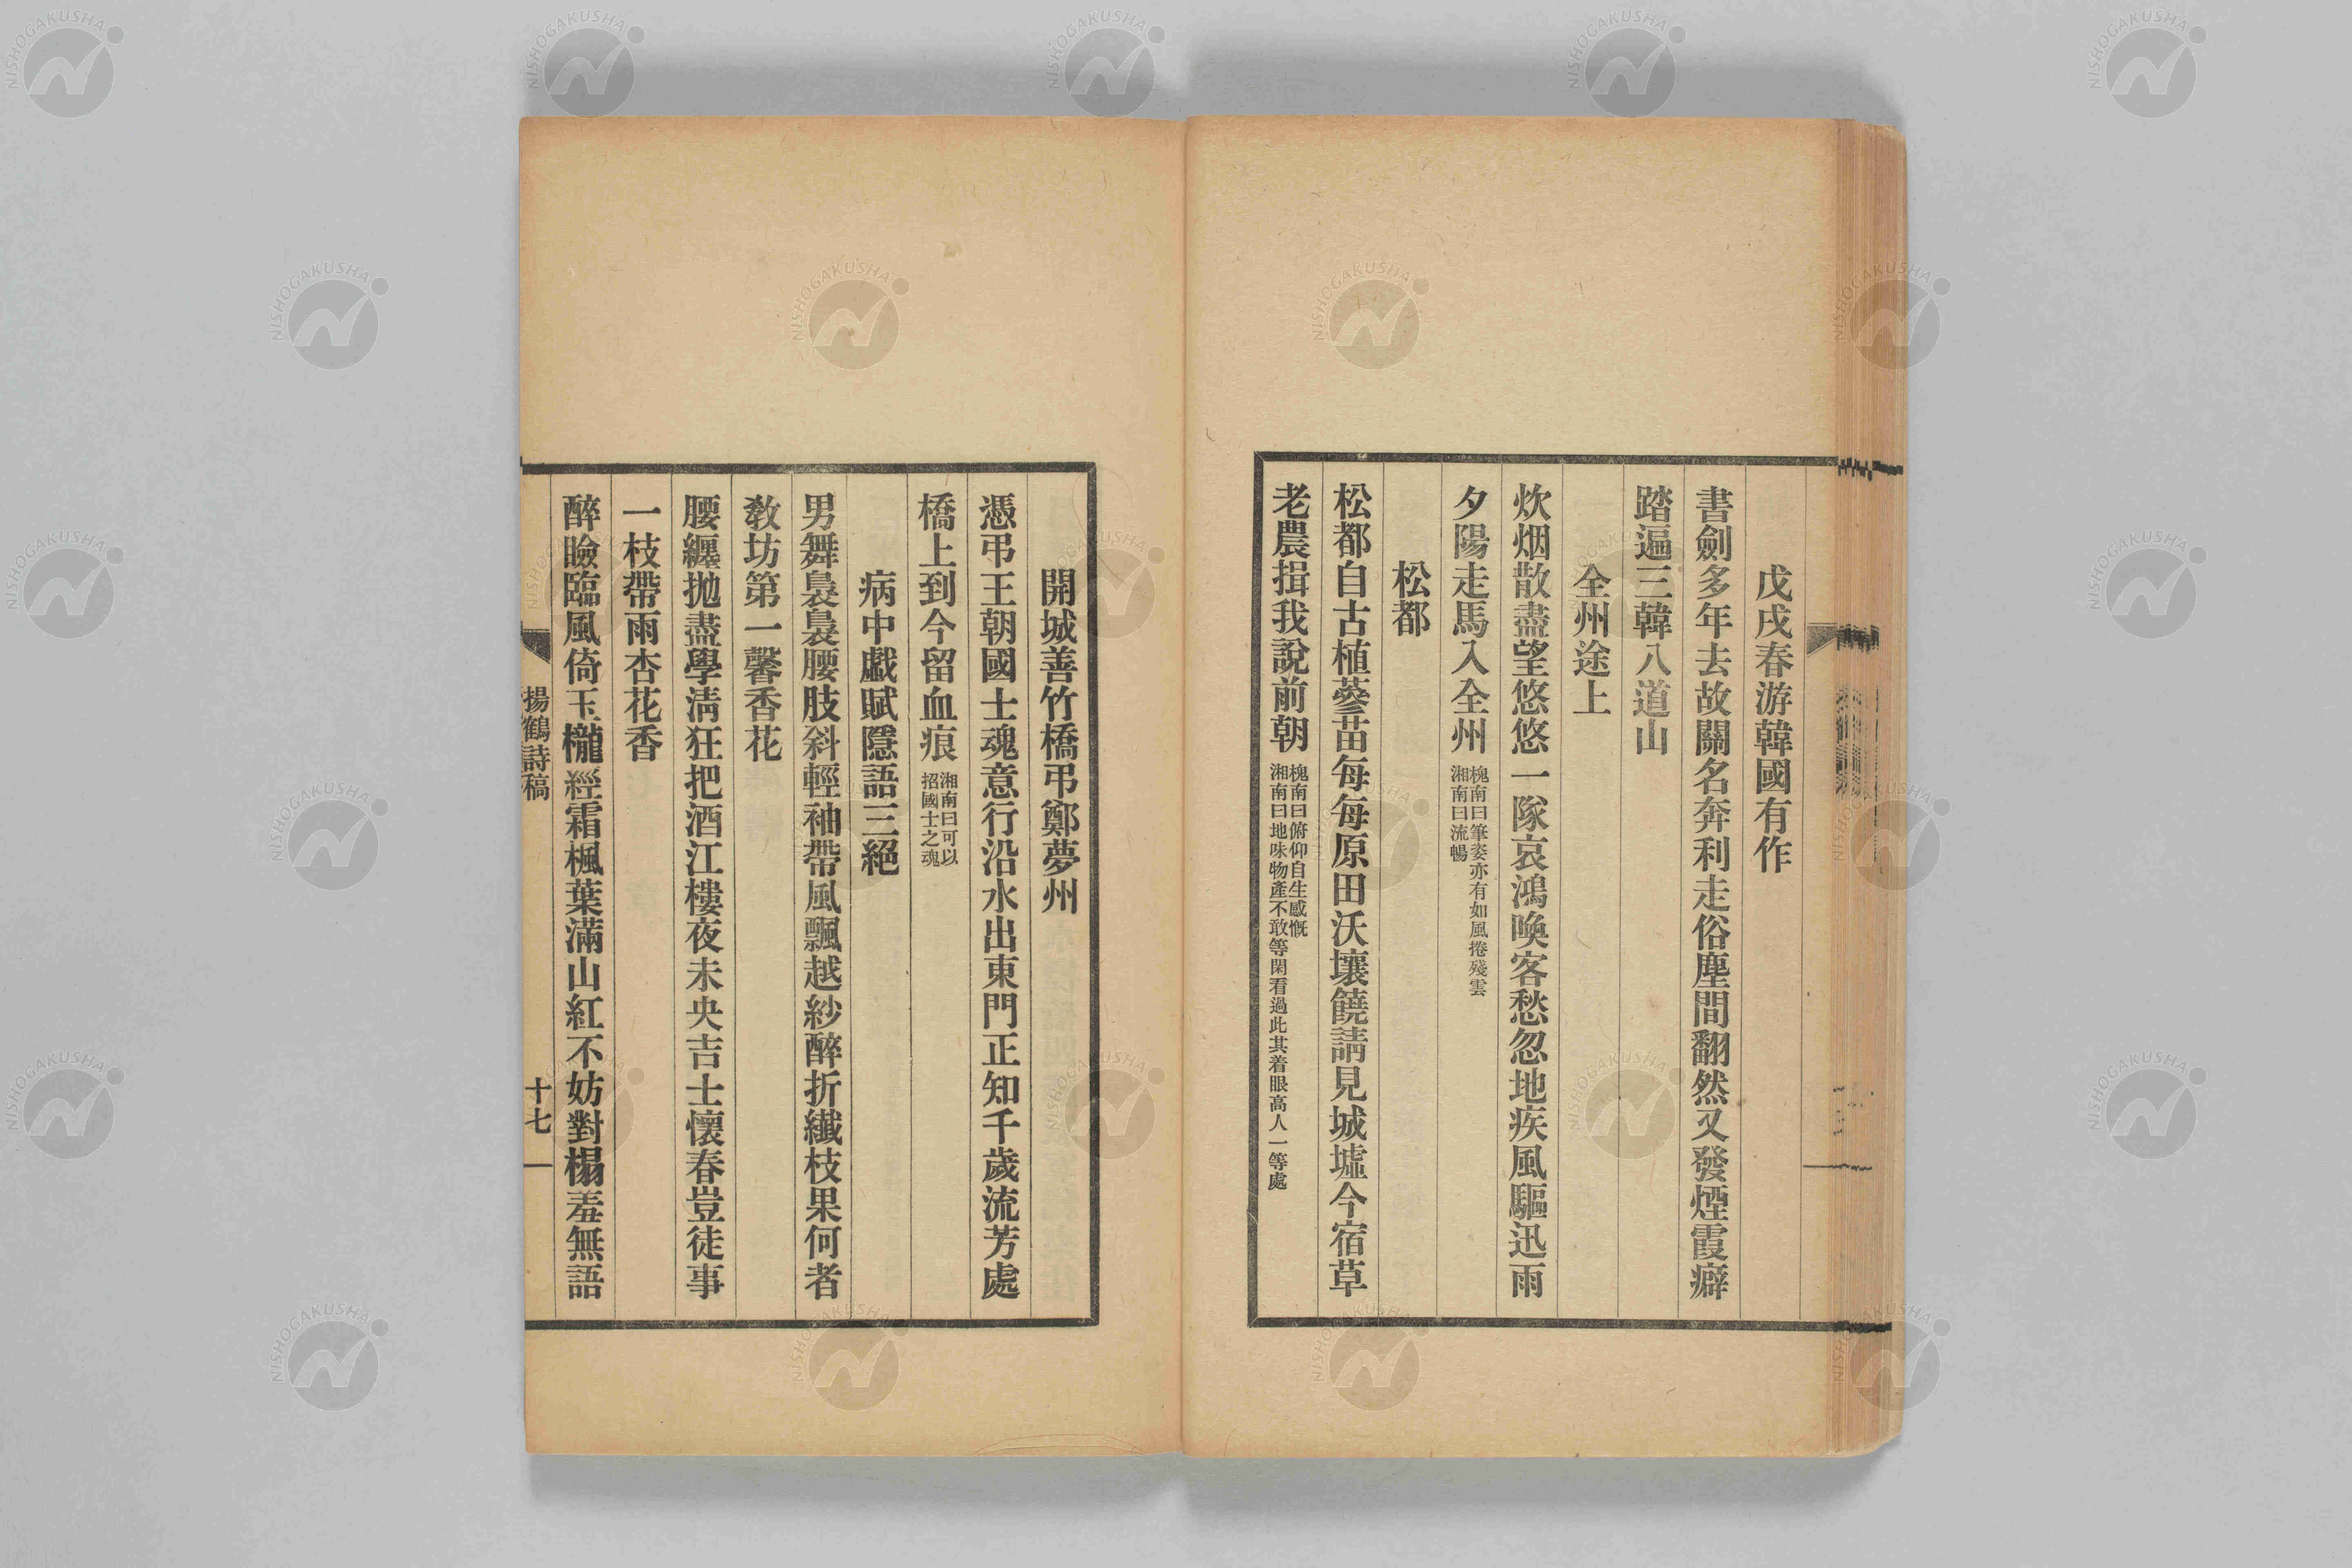 戊戌春游韓國有作
書劍多年去故關名奔利走俗塵間翻然又發煙霞癖
踏遍三韓八道山
全州途上
炊烟散盡望悠悠一隊哀鴻喚客愁忽地疾風驅迅雨
夕陽走馬入全州
槐南曰筆姿亦有如風捲殘雲
湘南曰流暢
松都
松都自古植蔘苗每每原田沃壤饒請見城墟今宿草
老農揖我說前朝
槐南曰俯仰自生感慨
湘南曰地味物產不敢等閑看過此其着眼高人一等處
開城善竹橋弔鄭夢州
憑弔王朝國士魂意行沿水出東門正知千歲流芳處
橋上到今留血痕
湘南曰可以
招國士之魂
病中戲賦隱語三絕
男舞裊裊腰肢斜輕袖帶風飄越紗醉折纖枝果何者
敎坊第一馨香花
腰纏拋盡學淸狂把酒江樓夜未央吉士懷春豈徒事
一枝帶雨杏花香
醉瞼臨風倚玉櫳經霜楓葉滿山紅不妨對榻羞無語
揚鶴詩稿
十七
NISHOGAKUSHA